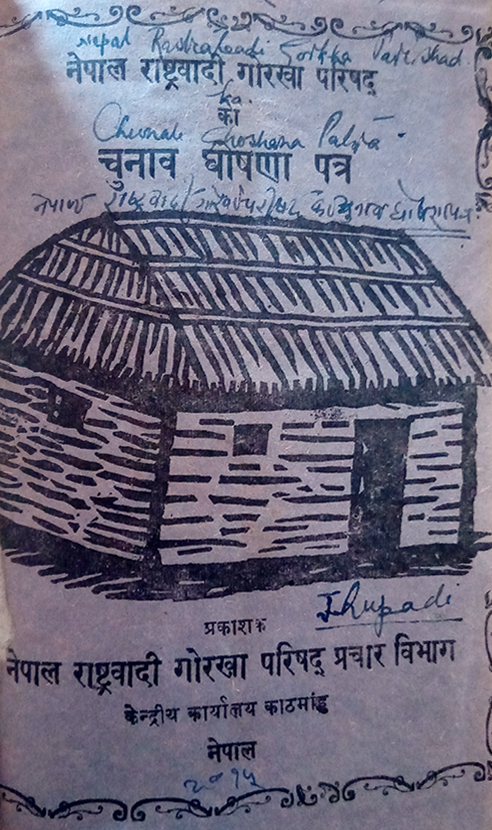 Nepal Rastrabadi Gorkha Parishad
नेपाल राष्ट्रवादी गोरखा परिषद्
ka.
को
Chunab Ghoshana Patra
चुनाव घोषणा पत्र
नेपाल राष्ट्रवादी गोरखा परिषद के चुनाव घोषणापत्र
प्रकाशक
Jhupadi
नेपाल राष्ट्रवादी गोरखा परिषद् प्रचार विभाग
केन्द्रीय कार्यालय काठमांडू
नेपाल
२०१५